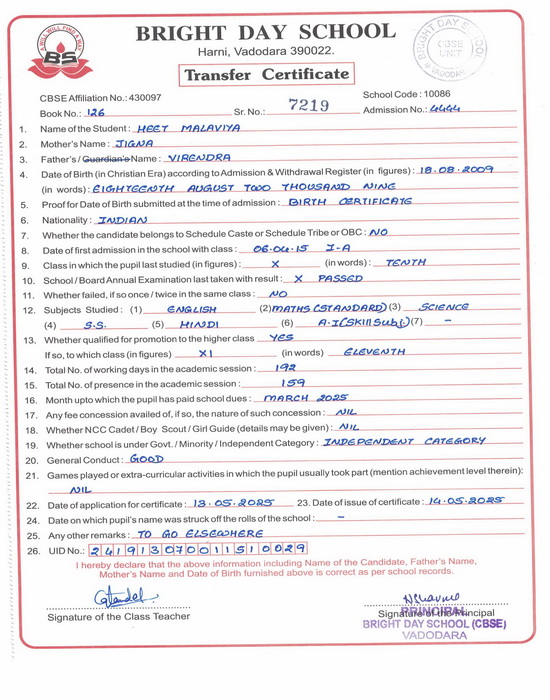 A WILL WILL FIND A WAY
BS
BRIGHT DAY SCHOOL
Harni, Vadodara 390022.
Transfer Certificate
BRIGHT DAY SCHOOL
CBSE
UNIT
VADODARA
CBSE Affiliation No.: 430097
School Code : 10086
Book No.: 126 Sr. No.: 7219 Admission No.: 4444
1. Name of the Student : HEET MALAVIYA
2. Mother's Name : JIGNA
3. Father's / Guardian's Name : VIRENDRA
4. Date of Birth (in Christian Era) according to Admission & Withdrawal Register (in figures) : 18.08.2009
(in words) : EIGHTEENTH AUGUST TWO THOUSAND NINE
5. Proof for Date of Birth submitted at the time of admission : BIRTH CERTIFICATE
6. Nationality : INDIAN
7. Whether the candidate belongs to Schedule Caste or Schedule Tribe or OBC : NO
8. Date of first admission in the school with class : 06.04.15 I-A
9. Class in which the pupil last studied (in figures) : X (in words) : TENTH
10. School / Board Annual Examination last taken with result : X PASSED
11. Whether failed, if so once / twice in the same class : NO
12. Subjects Studied : (1) ENGLISH (2) MATHS (STANDARD) (3) SCIENCE
(4) S.S. (5) HINDI (6) A.I (Skill Subj.) (7) -
13. Whether qualified for promotion to the higher class YES
If so, to which class (in figures) XI (in words) ELEVENTH
14. Total No. of working days in the academic session : 192
15. Total No. of presence in the academic session : 159
16. Month upto which the pupil has paid school dues : MARCH 2025
17. Any fee concession availed of, if so, the nature of such concession : NIL
18. Whether NCC Cadet / Boy Scout / Girl Guide (details may be given) : NIL
19. Whether school is under Govt. / Minority / Independent Category : INDEPENDENT CATEGORY
20. General Conduct : GOOD
21. Games played or extra-curricular activities in which the pupil usually took part (mention achievement level therein):
NIL
22. Date of application for certificate : 13.05.2025 23. Date of issue of certificate : 14.05.2025
24. Date on which pupil's name was struck off the rolls of the school : -
25. Any other remarks : TO GO ELSEWHERE
26. UID No.: 241913070011510029
I hereby declare that the above information including Name of the Candidate, Father's Name,
Mother's Name and Date of Birth furnished above is correct as per school records.
Signature of the Class Teacher
Signature of the Principal
PRINCIPAL
BRIGHT DAY SCHOOL (CBSE)
VADODARA